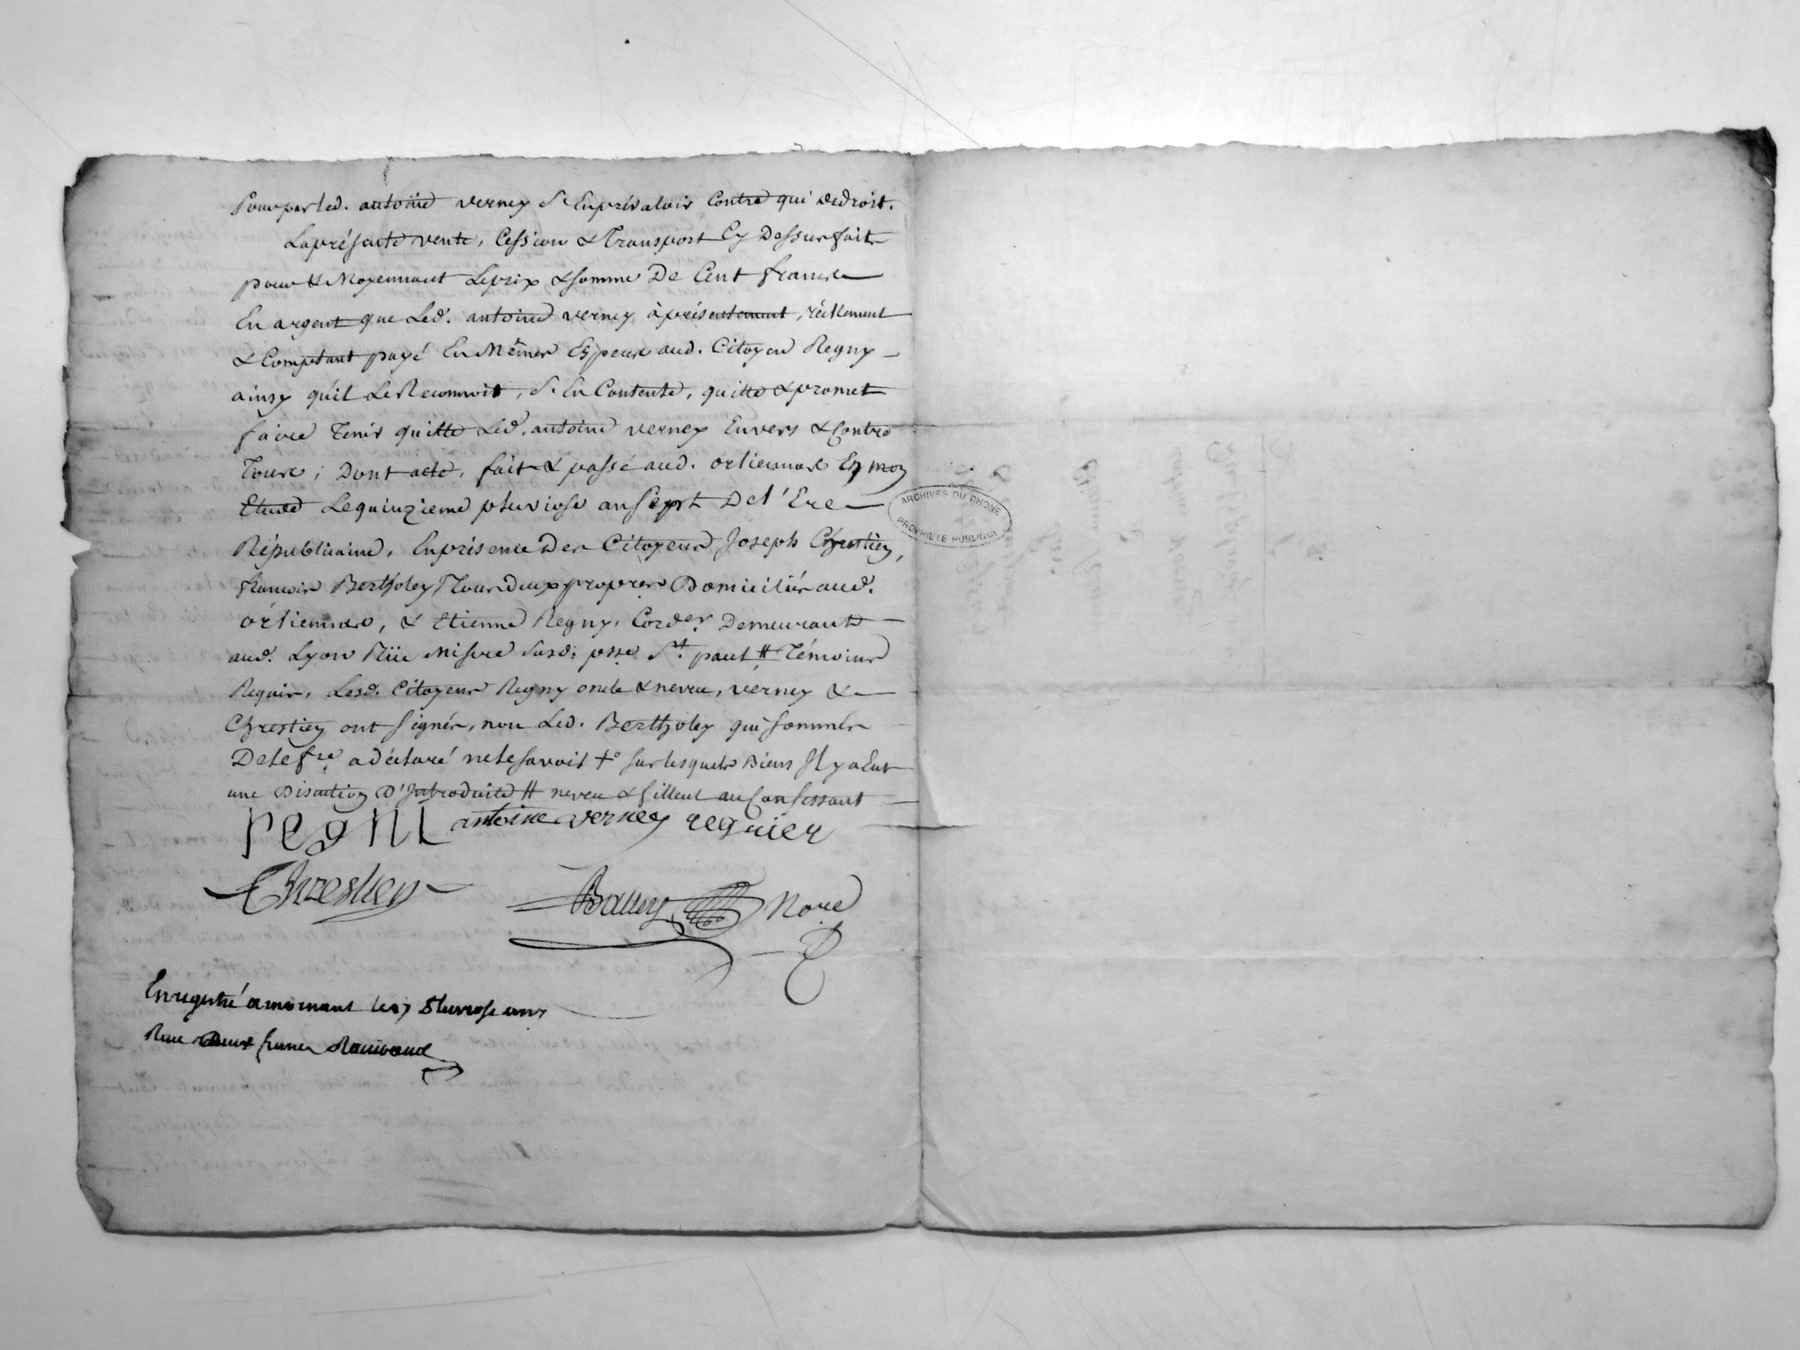 Pour par led. antoine verney S'En prévaloir Contre qui dedroit.
La présente vente, Cession & Transport Cy Dessus fait
pour & Moyennant Le prix & somme De Cent francs
En argent que Led. antoine verney à présentement, réellement
& Comptant payé En Mêmes Especes aud. Citoyen Regny
ainsy qu'il Le Reconnoit, S'En Contente, quitte & promet
faire Tenir quitte Led. antoine verney Envers & Contre
Tous; Dont acte, fait & passé aud. orlienas En mon
Etude Le quinzieme pluviose an Sept De l'Ere
Républicaine, En présence Des Citoyens Joseph Chrestien,
francois Bertholey Tous Deux propres Domiciliés aud.
orlienas, & Etienne Regny, Cord.er Demeurant
aud. Lyon Rüe Misere susd. psse St. paul # Témoins
Requis, Lesd. Citoyens Regny oncle & neveu, verney &
Chrestien ont signés, non Led. Bertholey qui sommés
De le fre a déclaré ne le savoir +° sur lesquels Biens Il y a Eut
une Discution D'Introduite # neveu & filleul au Confessant
regni antoine verney regnier
Chrestien
Bally Nore
Enregistré a mornant le 17 Pluviose an 7
Reçu deux francs
ARCHIVES DU RHONE
PROPRIETE PUBLIQUE